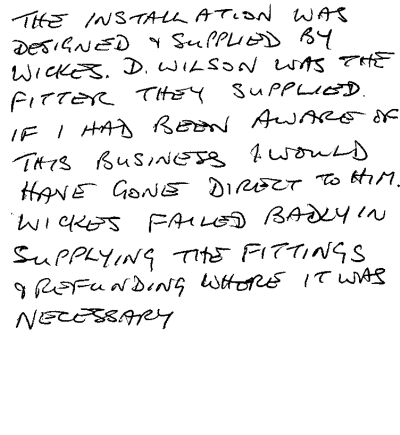 THE INSTALLATION WAS
DESIGNED & SUPPLIED BY
WICKES. D. WILSON WAS THE
FITTER THEY SUPPLIED.
IF I HAD BEEN AWARE OF
THIS BUSINESS I WOULD
HAVE GONE DIRECT TO HIM.
WICKES FAILED BADLY IN
SUPPLYING THE FITTINGS
& REFUNDING WHERE IT WAS
NECESSARY